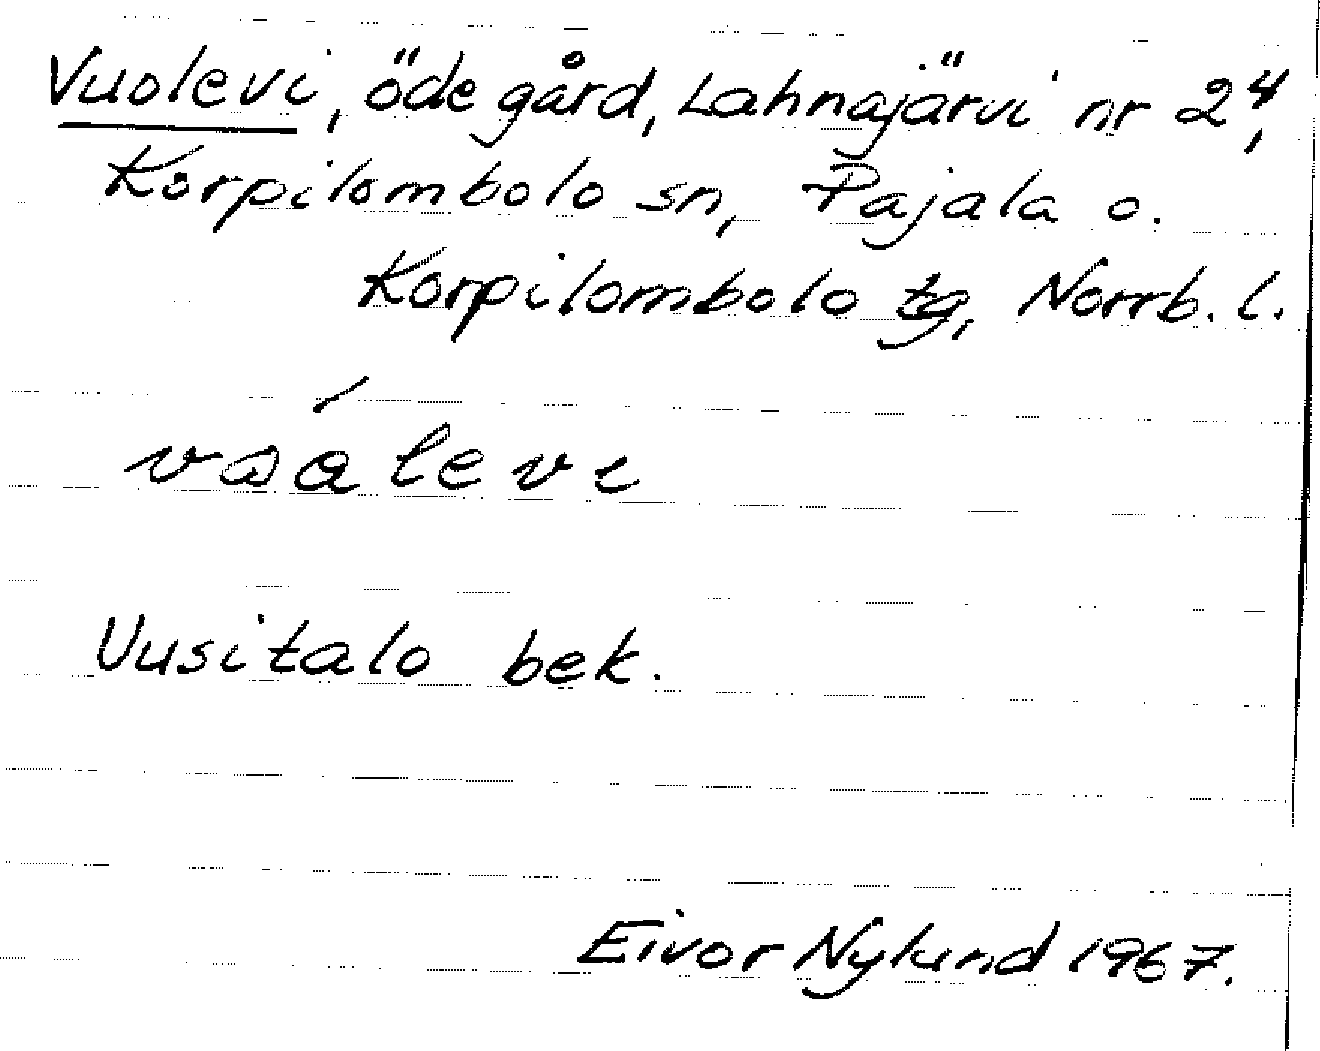 Vuolevi, ödegård, Lahnajärvi nr 2⁴,
Korpilombolo sn, Pajala o.
Korpilombolo tg, Norrb. l.
Uusitalo bek.
Eivor Nylund 1967.